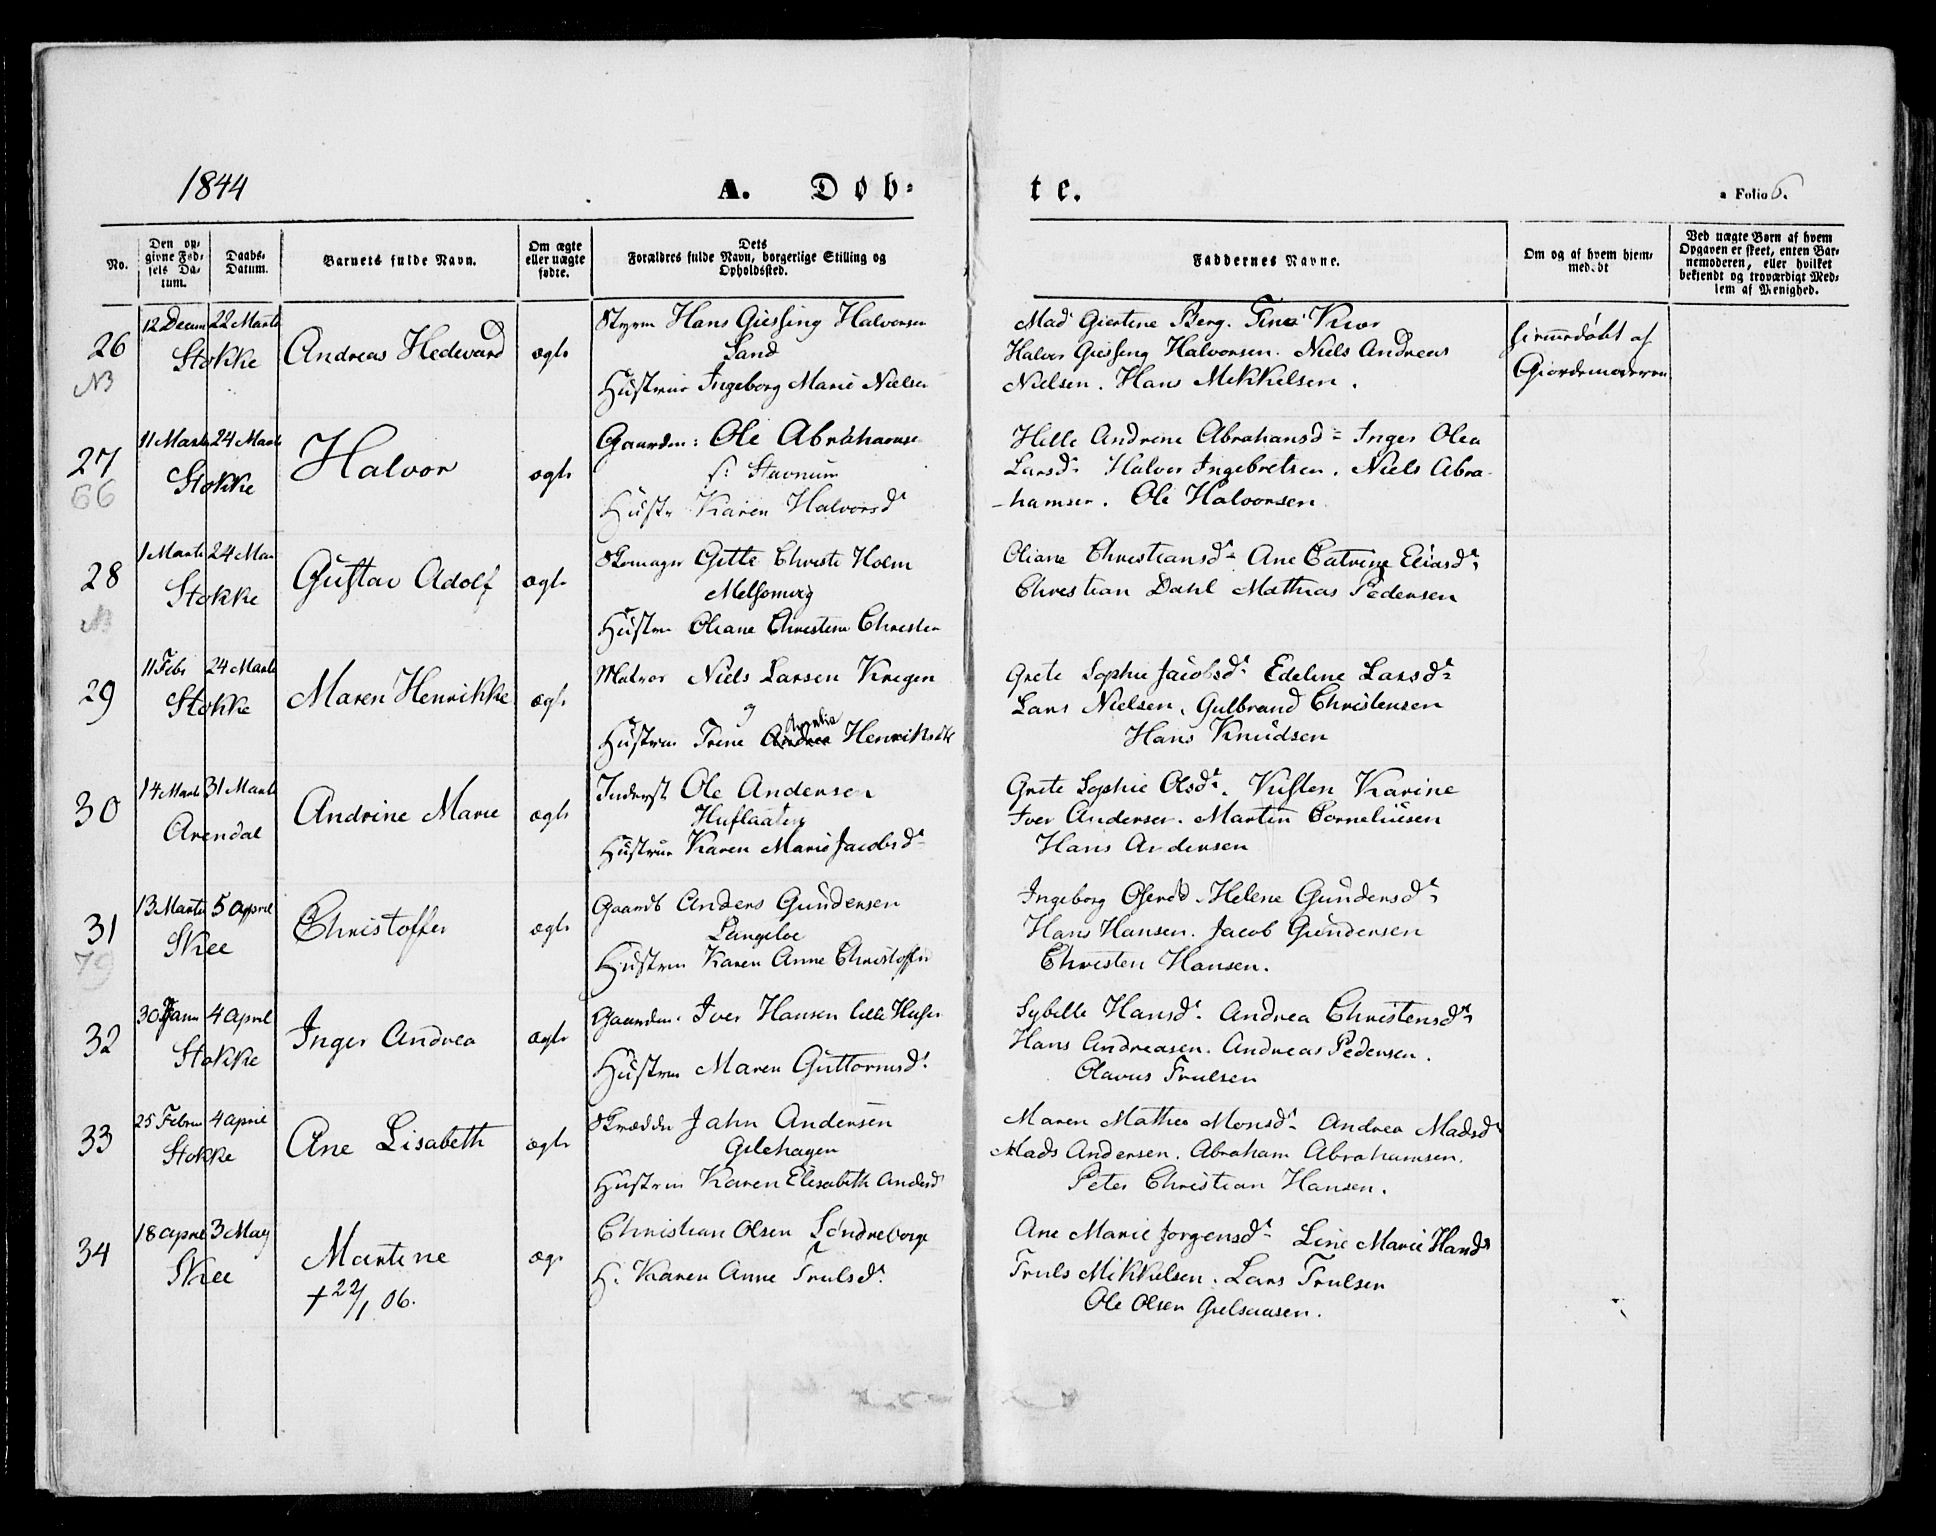 1844
A. Døb=
te.
a Folio 6.
No.
Den op=
givne Fød=
sels Da=
tum.
Daabs=
Datum.
Barnets fulde Navn.
Om ægte
eller uægte
fødte.
Dets
Forældres fulde Navn, borgerlige Stilling og
Opholdssted.
Faddernes Navne.
Om og af hvem hjem=
medøbt
Ved uægte Børn af hvem
Opgaven er skeet, enten Bar=
nemoderen, eller hvilket
bekjendt og troværdigt Med=
lem af Menighed.
26
NB
12 Decem 22 Marts
Stokke
Andreas Hedevard
ægte
Styrm Hans Giessing Halvorsen
Sand
Hustrue Ingeborg Marie Nielsen
Mad Giertine Berg. Tina
Halvor Giessing Halvorsen. Niels Andreas
Nielsen. Hans Mikkelsen.
hjemmedøbt af
Giordemoderen
27
66
11 Marts 24 Marts
Stokke
Halvor
ægte
Gaardm: Ole Abrahamse
Stavnum
Hustr Karen Halvorsd
Helle Andrine Abrahamsd = Inger Olea
Larsd. Halvor Ingebretsen. Niels Abra-
-hamsen. Ole Halvorsen
28
NB
1 Marts 24 Mar
Stokke
Gustav Adolf
ægte
Skomager Gitte Christi Holm
Melsomvig
Hustru Oliane Christine Christen
Oliane Christiansd. Ane Catrine Eliasd.
Christian Dahl Mathias Pedersen
29
11 Febr 24 Marts
Stokke
Maren Henrikke
ægte
Matros Niels Larsen Kregen
og
Hustrue Trine Andrea Henriksd
Grete Sophie Jacobsd. Edeline Larsd.
Lars Nielsen. Gulbrand Christensen
Hans Knudsen
30
14 Marts 31 Marts
Arendal
Andrine Marie
ægte
Inderst Ole Andersen
Huflaaten
Hustrue Karen Marie Jacobsd.
Grete Sophie Olsd. Karine
Iver Andersen. Martin Corneliusen
Hans Andersen
31
79
13 Marts 5 April
Skee
Christoffer
ægte
Gaardb Anders Gundersen
Langeloe
Hustrue Karen Anne Christoffer
Ingeborg Helene Gundersd.
Hans Hansen. Jacob Gundersen
Christen Hansen.
32
30 Janu 4 April
Stokke
Inger Andrea
ægte
Gaardm. Iver Hansen lille
Hustrue Maren Guttormsd.
Sybille Hansd. Andrea Christensd.
Hans Andreasen. Andreas Pedersen.
Olavus Trulsen
33
25 Febru 4 April
Stokke
Ane Lisabeth
ægte
Skrædder John Andersen
Gilehagen
Hustrue Karen Elisabeth Andersd
Maren Mathea Monsd. Andrea Madsd.
Mads Andersen. Abraham Abrahamsen.
Peter Christian Hansen.
34
18 April 3 May
Skee
Martine
† 22/1 06.
æg
Christian Olsen Søndreborge
H. Karen Anne Trulsd.
Ane Marie Jorgensd. Line Marie Hansd
Truls Mikkelsen. Lars Trulsen
Ole Olsen Gulsaasen.